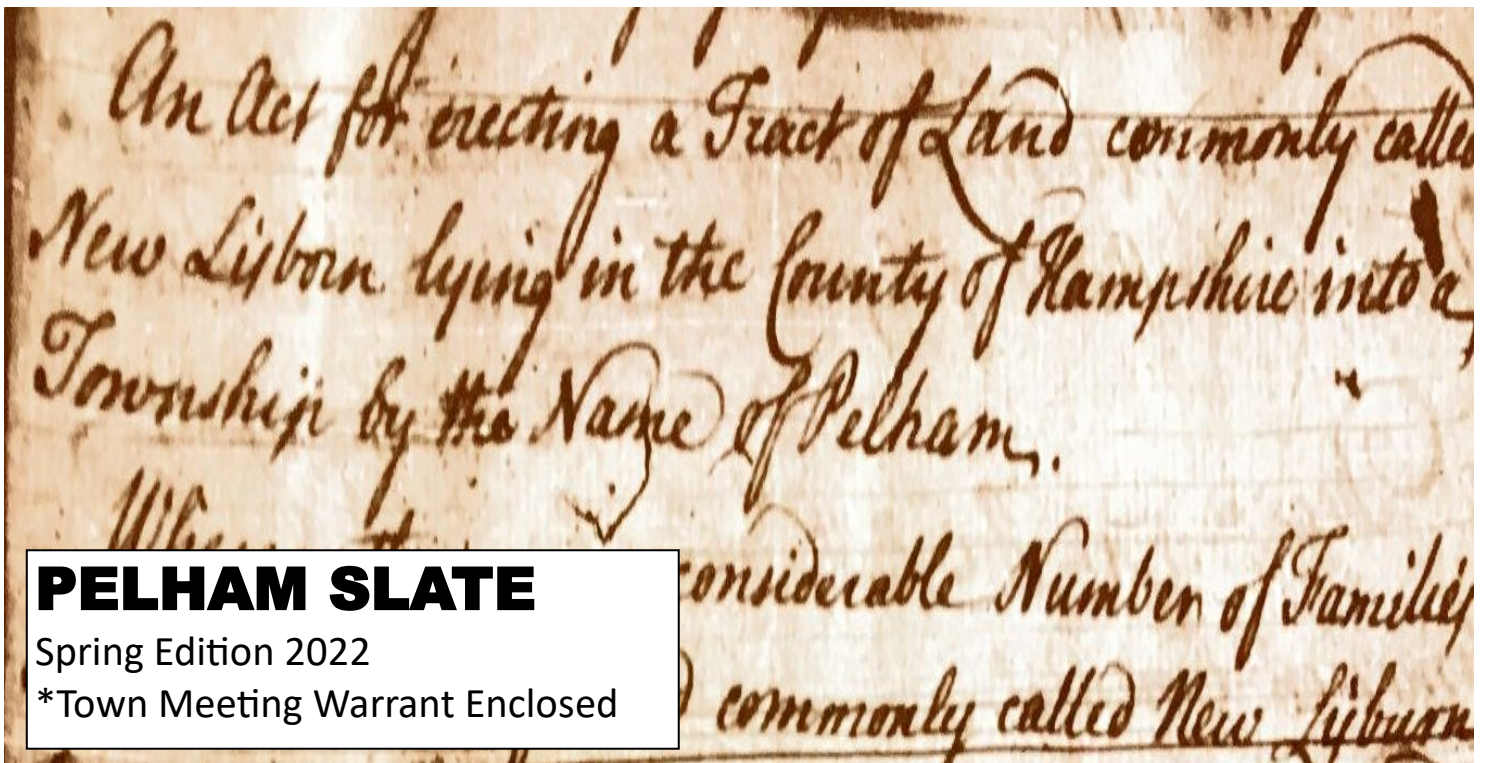 An Act for erecting a Tract of Land commonly called
New Lisborn lying in the County of Hampshire into a
Township by the Name of Pelham.
considerable Number of Families
commonly called New Lisburn
PELHAM SLATE
Spring Edition 2022
*Town Meeting Warrant Enclosed